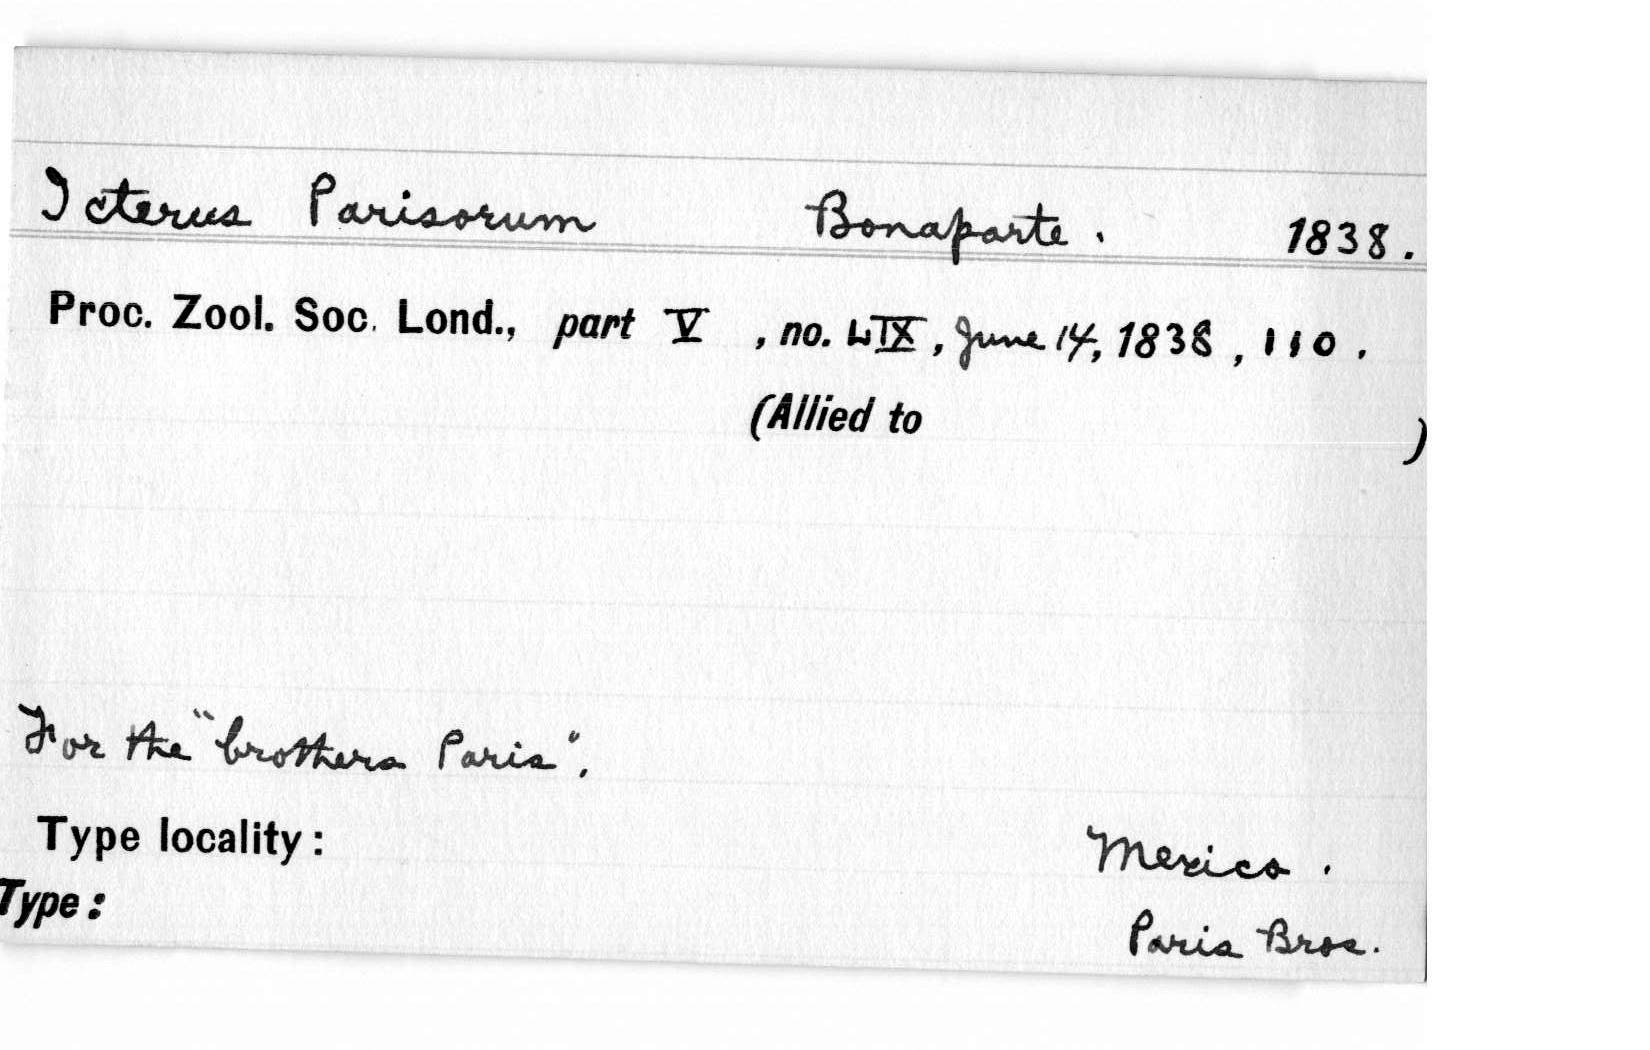 Icterus Parisorum Bonaparte. 1838.
Proc. Zool. Soc. Lond., part V, no. LIX, June 14, 1838, 110.
(Allied to )
For the "brothers Paris".
Type locality: Mexico.
Type: Paris Bros.